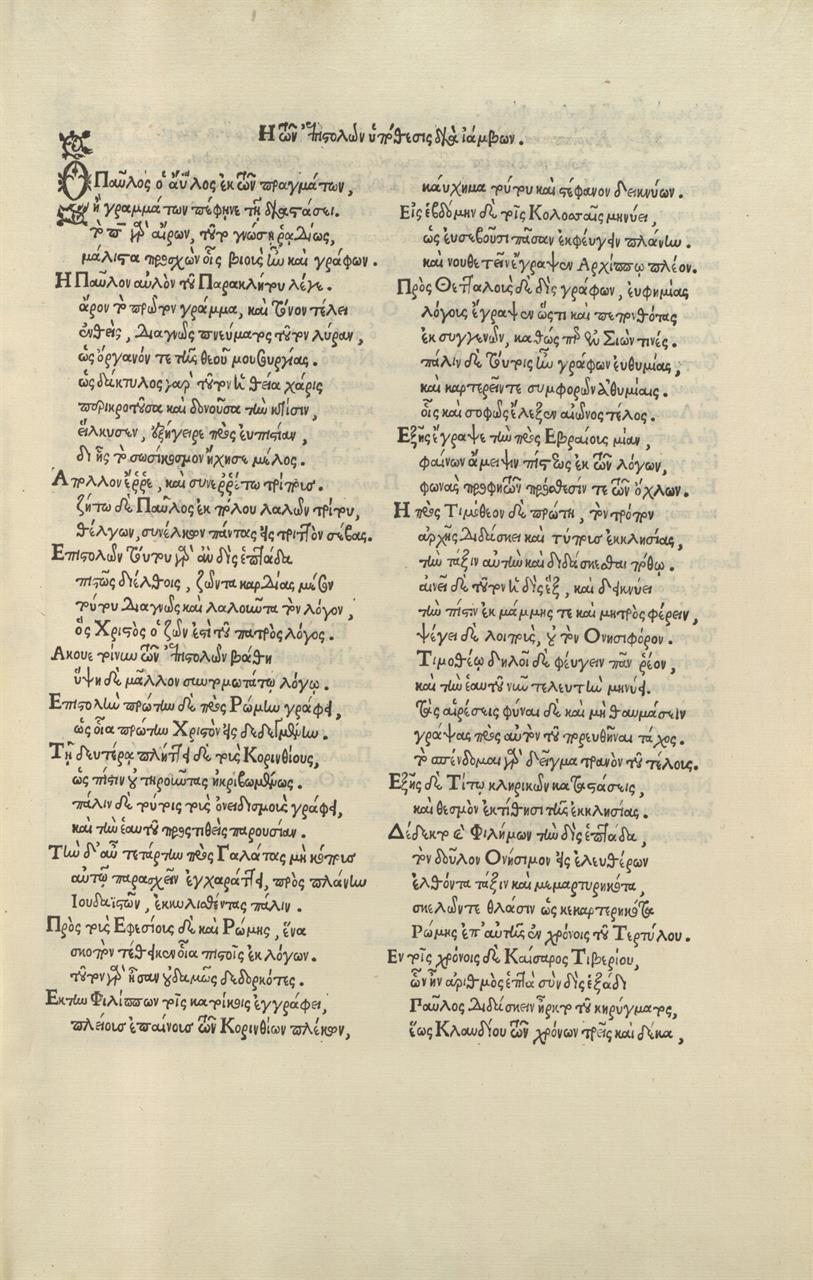 Η τῶν ἐπιστολῶν ὑπόθεσις διὰ ἰάμβων.
Ο Παῦλος ὁ ἄϋλος ἐκ τῶν πραγμάτων,
ἢ γραμμάτων πέφηνε τῇ διαστάσει.
τὸ π γὰρ αἴρων, τοῦτο γνώσῃ ῥᾳδίως,
μάλιστα προσχὼν οἷς βιοῖς ἦν καὶ γράφων.
Η Παῦλον αὐλὸν τοῦ Παρακλήτου λέγε.
ἆρον τὸ πρῶτον γράμμα, καὶ τίνον τέλει
ἐνθεὶς, διαγνῶς πνεύματος τοῦτον λύραν,
ὡς ὄργανόν τε τῆς θεοῦ μουσουργίας.
ὡς δάκτυλος γὰρ τοῦτον ἡ θεία χάρις
περικροτοῦσα καὶ δονοῦσα τὴν κτίσιν,
εἵλκυσεν, ἐξήγειρε πρὸς εὐπιστίαν,
δι ἧς τὸ σωσίκοσμον ἤχησε μέλος.
Απόλλον ἔρρε, καὶ συνερρέτω τρίπους.
ζήτω δὲ Παῦλος ἐκ πόλου λαλῶν τρίτου,
θέλγων, συνέλκων πάντας εἰς τριττὸν σέβας.
Επιστολῶν τούτου γὰρ ἂν δὶς ἑπτάδα
πιστῶς διέλθοις, ζῶντα καρδίας μέσον
τοῦτου διαγνῶς καὶ λαλοῦντα τὸν λόγον,
ὃς Χριστὸς ὁ ζῶν ἐστὶ τοῦ πατρὸς λόγος.
Ακουε τοίνυν τῶν ἐπιστολῶν βάθη
ὕψη δὲ μᾶλλον συντομωτάτῳ λόγῳ.
Επιστολὴν πρώτην δὲ πρὸς Ρώμην γράφει,
ὡς οἷα πρώτην Χριστὸν εἰς δεδεγμένην.
Τῇ δευτέρᾳ πλήττει δὲ τοὺς Κορινθίους,
ὡς πίστιν οὐ τηροῦντας ἠκριβωμένως.
πάλιν δὲ τούτοις τοὺς ὀνειδισμοὺς γράφει,
καὶ τὴν ἑαυτοῦ προστιθεὶς παρουσίαν.
Τὴν δ' αὖ τετάρτην πρὸς Γαλάτας μὴ κόπους
αὐτῷ παρασχεῖν ἐγχαράττει, πρὸς πλάνην
Ιουδαϊστῶν, ἐκκυλισθέντας πάλιν.
Πρὸς τοὺς Εφεσίους δὲ καὶ Ρώμης, ἕνα
σκοπὸν τέθεικεν οἷα πιστοῖς ἐκ λόγων.
τοῦτον γὰρ ἦσαν οὐδαμῶς δεδορκότες.
Εκτην Φιλίππων τοῖς κατοίκοις ἐγγράφει,
πλείοις ἐπαίνοις τῶν Κορινθίων πλέκων,
καύχημα τούτου καὶ στέφανον δεικνύων.
Εἰς ἑβδόμην δὲ τοῖς Κολοσσαῖς μηνύει,
ὡς εὐσεβοῦσι πᾶσαν ἐκφεύγειν πλάνην.
καὶ νουθετεῖν ἔγραψεν Αρχίππῳ πλέον.
Πρὸς Θετταλοὺς δὲ δὶς γράφων, εὐφημίας
λόγοις ἔγραψεν ὥς τι καὶ πεπονθότας
ἐκ συγγενῶν, καθώς περ ἐν Σιών τινές.
πάλιν δὲ τούτοις ἦν γράφων εὐθυμίας,
καὶ καρτερεῖν τε συμφορῶν ἀθυμίαις.
οἷς καὶ σοφῶς ἔλεξεν αἰῶνος τέλος.
Εξῆς ἔγραψε τὴν πρὸς Εβραίους μίαν,
φαίνων ἄμειψιν πίστεως ἐκ τῶν λόγων,
φωνὰς προφητῶν πρόσθεσίν τε τῶν ὄχλων.
Η πρὸς Τιμόθεον δὲ πρώτη, τὸν τρόπον
ἀρχῆς διδάσκει καὶ τύπους ἐκκλησίας,
τὴν τάξιν αὐτὴν καὶ διδάσκεσθαι πόθῳ.
αἰνεῖ δὲ τοῦτον ἡ δὶς ἓξ, καὶ δεικνύει
τὴν πίστιν ἐκ μάμμης τε καὶ μητρὸς φέρειν,
ψέγει δὲ λοιποὺς, οὐ τὸν Ονησιφόρον.
Τιμοθέῳ δηλοῖ δὲ φεύγειν πᾶν ῥέον,
καὶ τὴν ἑαυτοῦ νῦν τελευτὴν μηνύει.
τὰς αἱρέσεις φῦναι δὲ καὶ μὴ θαυμάσειν
γράψας πρὸς αὐτὸν τοῦ πορευθῆναι τάχος.
τὸ σπένδομαι γὰρ δεῖγμα τρανὸν τοῦ τέλους.
Εξῆς δὲ Τίτῳ κληρικῶν καταστάσεις,
καὶ θεσμὸν ἐκτίθησι τῆς ἐκκλησίας.
Δέδεκτο Φιλήμων τὴν δὶς ἑπτάδα,
τὸν δοῦλον Ονήσιμον εἰς ἐλευθέρων
ἐλθόντα τάξιν καὶ μεμαρτυρηκότα,
σκελῶν τε θλάσιν ὡς κεκαρτερηκότα
Ρώμης ἐπ' αὐτῆς ἐν χρόνοις τοῦ Τερτύλου.
Εν τοῖς χρόνοις δὲ Καίσαρος Τιβερίου,
ὧν ἦν ἀριθμὸς ἑπτὰ σὺν δὶς ἑξάδι
Παῦλος διδάσκειν ἤρκτο τοῦ κηρύγματος,
ἕως Κλαυδίου τῶν χρόνων τρεῖς καὶ δέκα,